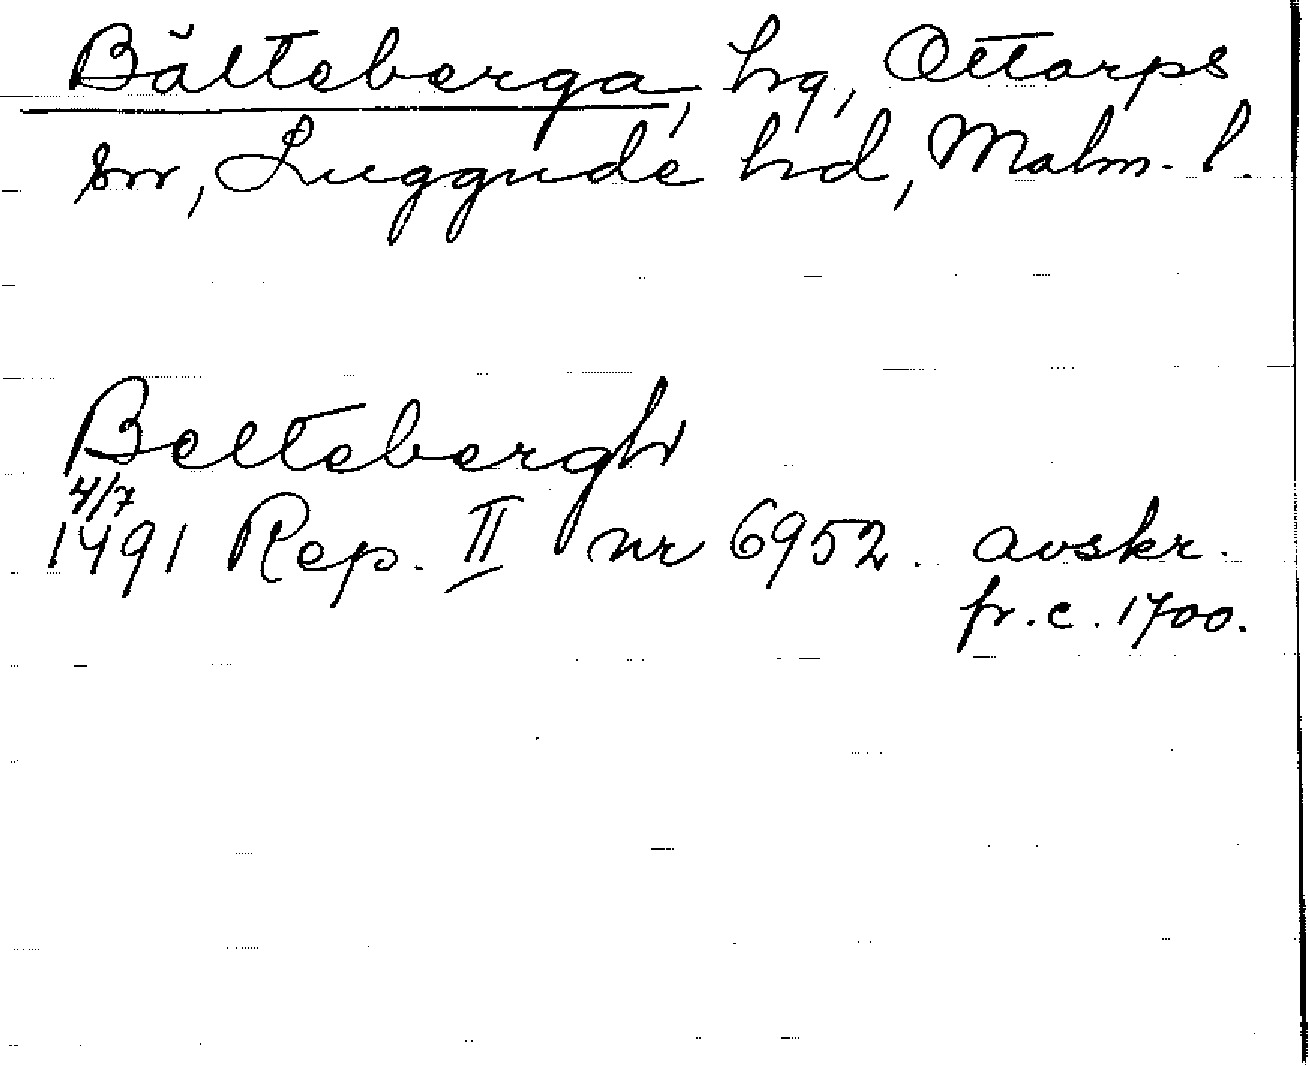 Bälteberga, hg, Ottarps
sn, Luggude hd, Malm. l.
Beltebergh
4/7
1491 Rep. II nr 6952. avskr.
fr. c. 1700.